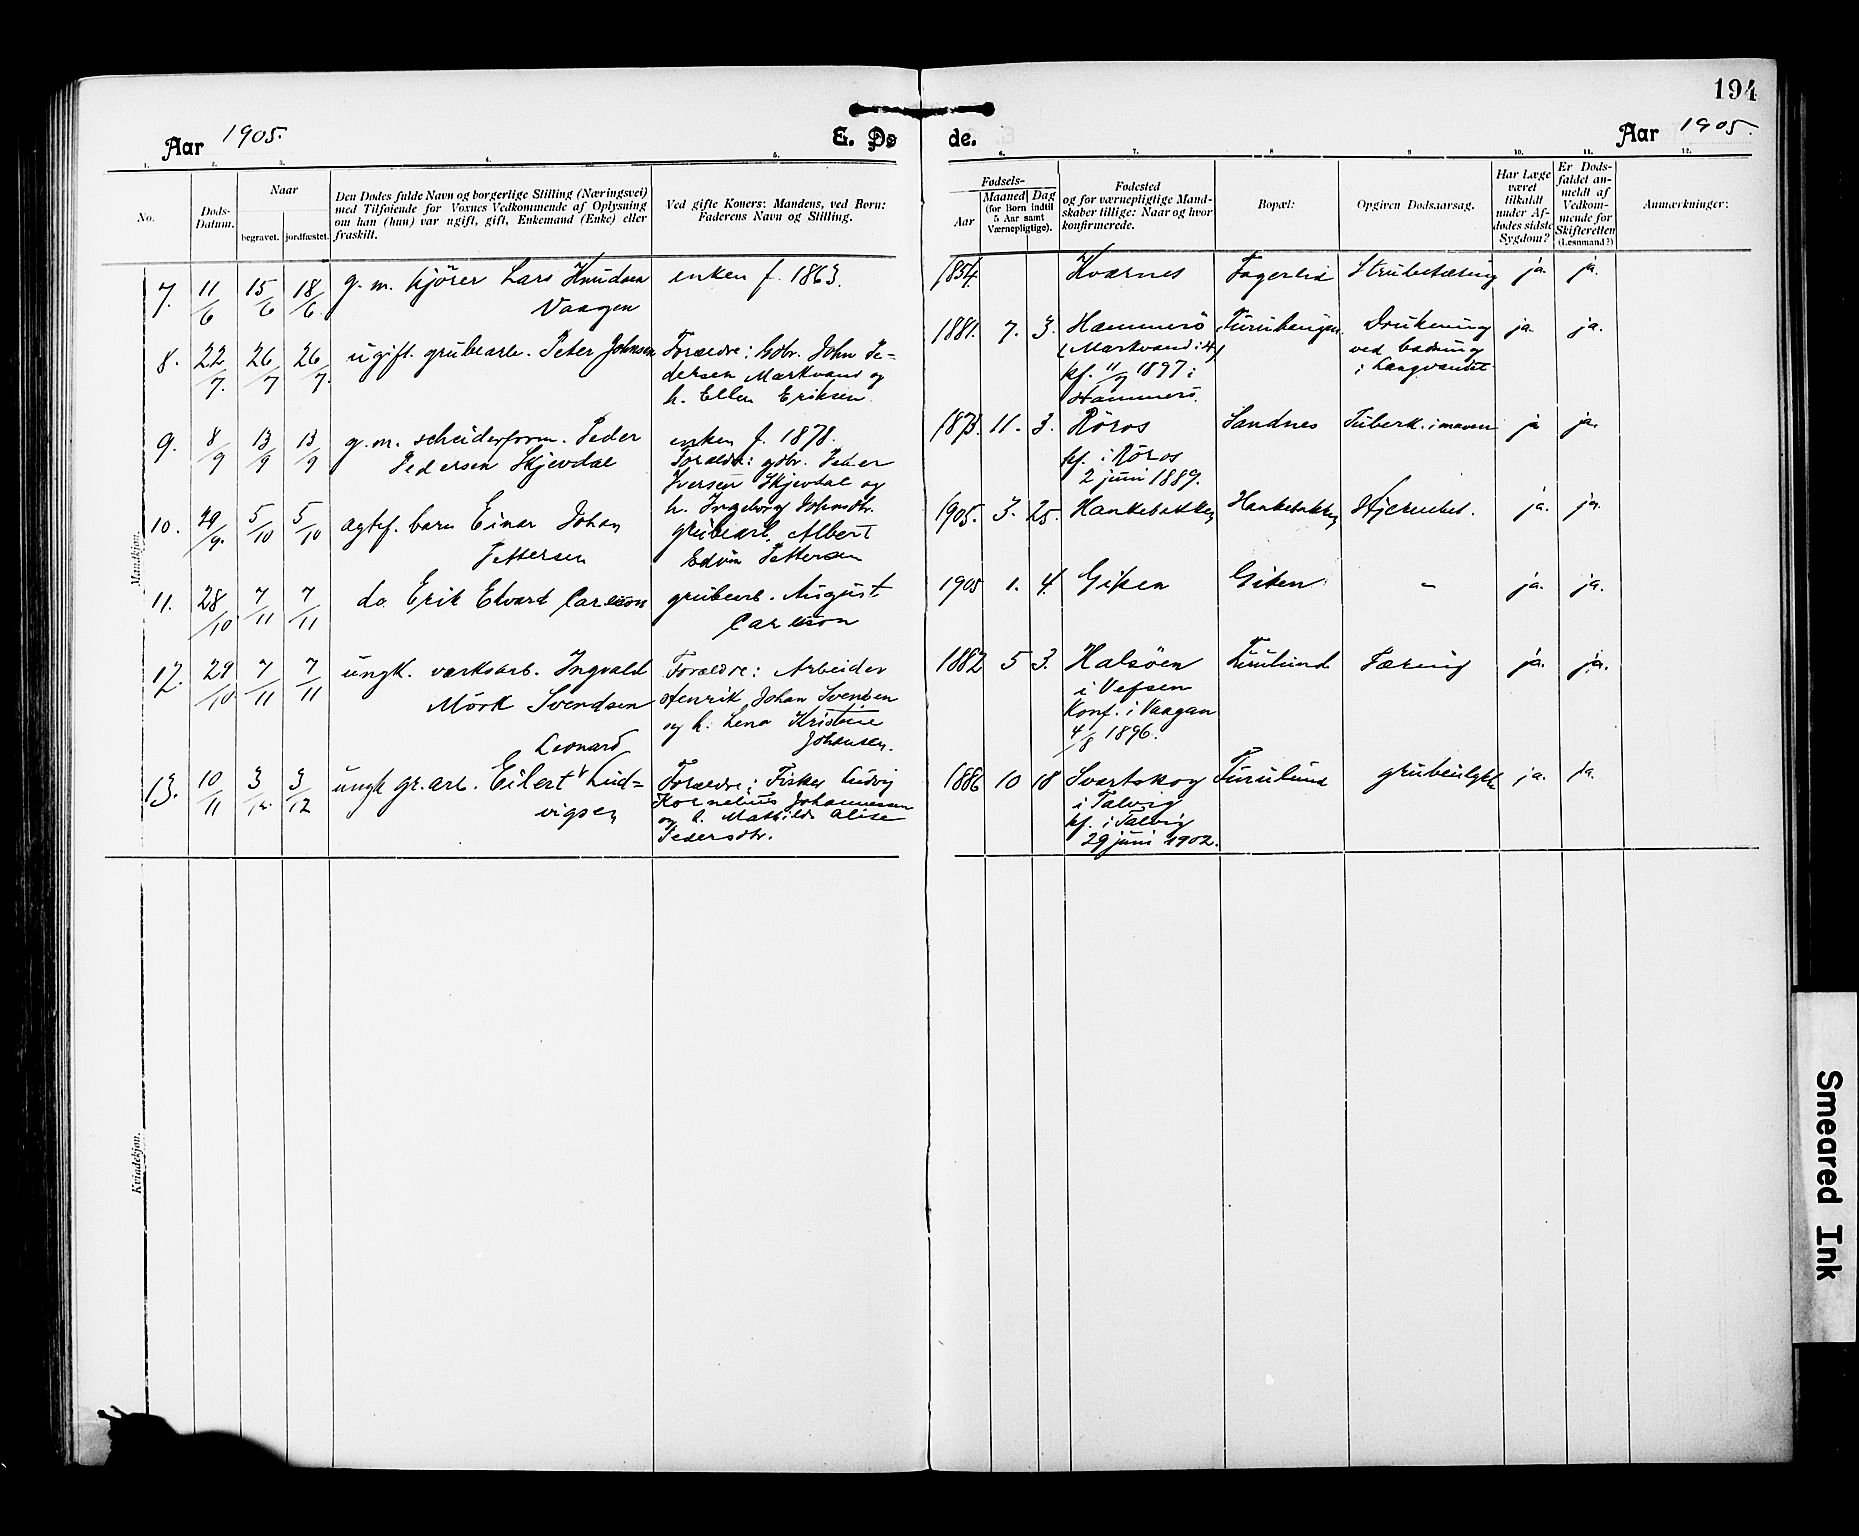 194
Aar 1905.
E. Dø
de.
Aar 1905.
1. 2. 3. 4. 5.
6. 7. 8 9 10. 11. 12.
No.
Døds-
Datum.
Naar
begravet. jordfæstet.
Den Dødes fulde Navn og borgerlige Stilling (Næringsvei)
med Tilføiende for Voxnes Vedkommende af Oplysning
om han (hun) var ugift, gift, Enkemand (Enke) eller
fraskilt.
Ved gifte Koner: Mandens, ved Børn:
Faderens Navn og Stilling.
Fødsels-
Aar
Maaned Dag
(for Børn indtil
5 Aar samt
Værnepligtige).
Fødested
og for værnepligtige Mand-
skaber tillige: Naar og hvor
konfirmerede.
Bopæl:
Opgiven Dødsaarsag.
Har Læge
været
tilkaldt
under Af-
dødes sidste
Sygdom?
Er Døds-
faldet an-
meldt af
Vedkom-
mende for
Skifteretten
(Lensmand?)
Anmærkninger:
Mandkjøn.
7. 11/6 15/6 18/6. g. m. kjører Lars Knudsen
Vaagen
enken f. 1863.
1854. Kværnes Fagerlid Strubetæring ja. ja.
8. 22/7. 26/7 26/7. ugift. grubearb. Peter Johnsen
Forældre: Gdbr. John Pe-
dersen Mærkvand og
h. Ellen Eriksen
1881. 7. 3. Hammerö Furuhaugen Drukning ja. ja.
(Mærkvand i H)
ved badning
kf. 11/7 1897 i
i Langvandet
Hammerö.
9. 8/9 13/9 13/9 g. m. scheiderform. Peder
Pedersen Skjevdal
enken f. 1878.
Forældr: gdbr. Peder
Iversen Skjevdal og
h. Ingeborg Johnsdtr.
1873. 11. 3. Röros Sandnes Tuberk. i maven ja ja.
kf. i Röros
2 juni 1889.
10. 29/9. 5/10 5/10 ægtef. barn Einar Johan
Pettersen
grubearb. Albert
Edvin Pettersen
1905. 3. 25. Hankebakken Hankebakken Hjernebet. ja. ja.
11. 28/10 7/11 7/11 do Erik Edvard Carlsson
grubearb. August
Carlsson
1905 1. 4. Giken Giken " ja. ja.
12. 29/10 7/11 7/11 ungk. værksarb. Ingvald
Mörk Svendsen
Forældre: Arbeider
Henrik Johan Svendsen
og h. Lena Kristine
Johansen.
1882 5 3. Halsöen Furulund Tæring ja. ja.
i Vefsen
Konf. i Vaagan
4/8 1896.
13. 10/11 3/12 3/12 ungk gr. arb. Eilert Leonard Lud-
vigsen
Forældre: Fisker Ludvig
Kornelius Johannessen
og h. Mathilde Alise
Pedersdtr.
1886 10 18 Svartskog Furulund grubeulykke ja. ja.
i Talvig
kf. i Talvig
29 juni 1902.
Kvindekjøn.
Smeared Ink